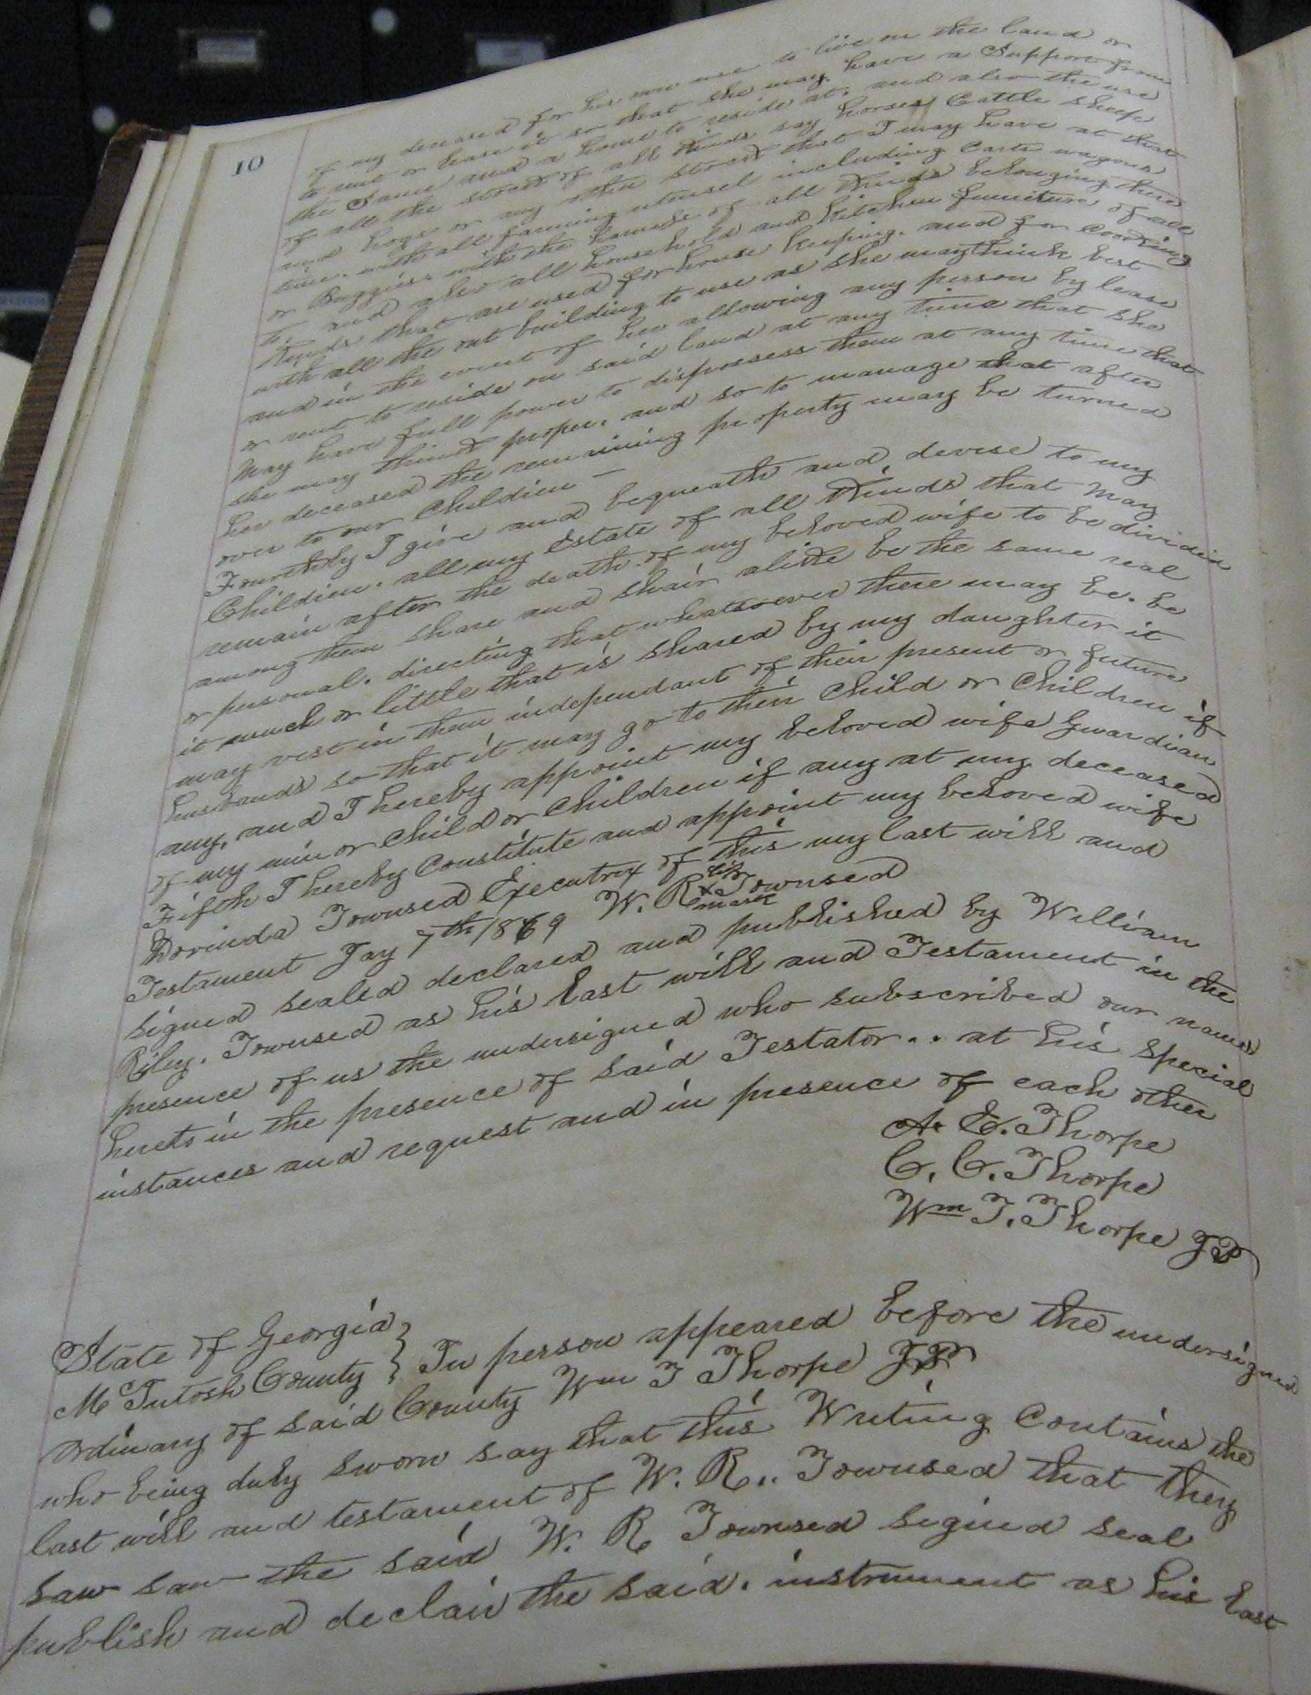 10
of my deceased for her own use to live on the land or
to rent or lease it so that she may have a Support from
the Same and a home to reside at, and also the use
of all the stock of all kinds say horses Cattle sheep
and hogs or any other stock that I may have at that
time. with all farming utensel including Carts wagons
or Buggies with the use of all kinds belonging there
to and also all household and kitchen furniture of all
kinds that are used for house keeping. and for cooking
with all the out building to use as she may think best
and in the event of her allowing any person by lease
or rent to reside on said land at any time that she
may have full power to dispossess them at any time that
she may think proper, and so to manage that after
her deceased the remaining property may be turned
over to our Children —
Fourthly I give and bequeath and devise to my
Children. all my Estate of all kinds that may
remain after the death of my beloved wife to be dividin
among them share and shair alike be the same real
or personal. directing that whatsoever there may be. be
it much or little that is shared by my daughter it
may vest in them independant of their present or future
husbands so that it may go to their Child or Children if
any, and I hereby appoint my beloved wife Guardian
of my minor Child or Children if any at my deceased
Fifth I hereby Constitute and appoint my beloved wife
Dorinda Townsed Executrix of this my last will and
Testament Jay 7th 1869 W. R. his x mark Townsed
Signed sealed declared and published by William
Riley. Townsed as his last will and Testament in the
presence of us the undersigned who subscribed our names
hereto in the presence of said Testator.. at his special
instances and request and in presence of each other
A. E. Thorpe
C. C. Thorpe
Wm T. Thorpe JP
State of Georgia }
McIntosh County } In person appeared before the undersigned
ordinary of said County Wm T Thorpe JP
who being duly sworn say that this Writing Contains the
last will and testament of W. R.. Townsed that they
saw saw the said W. R Townsed signed seal
publish and declair the said. instrument as his last